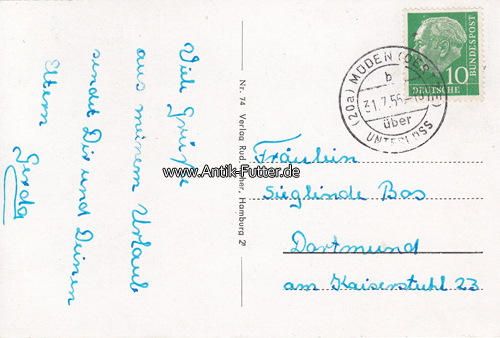 Viele Grüße
aus meinem Urlaub
sendet Dir und Deinen
Eltern
Gerda
Nr. 74 Verlag Rud. Hamburg
www.Antik-Futter.de
DEUTSCHE
BUNDESPOST
10
(20a) MÜDEN (ÖRTZE)
b
31.7.56
über
UNTERLÜSS
Fräulein
Sieglinde Bas
Dortmund
am Kaiserstuhl 23